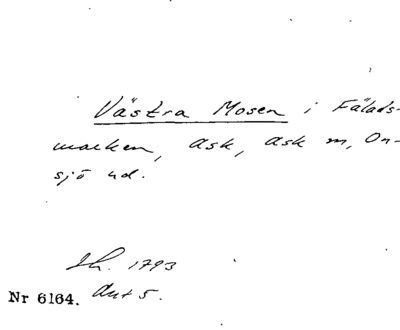 Västra Mosen i Fälads-
marken, Ask, Ask sn, On-
sjö hd.
Sk. 1793
Nr 6164. Akt 5.